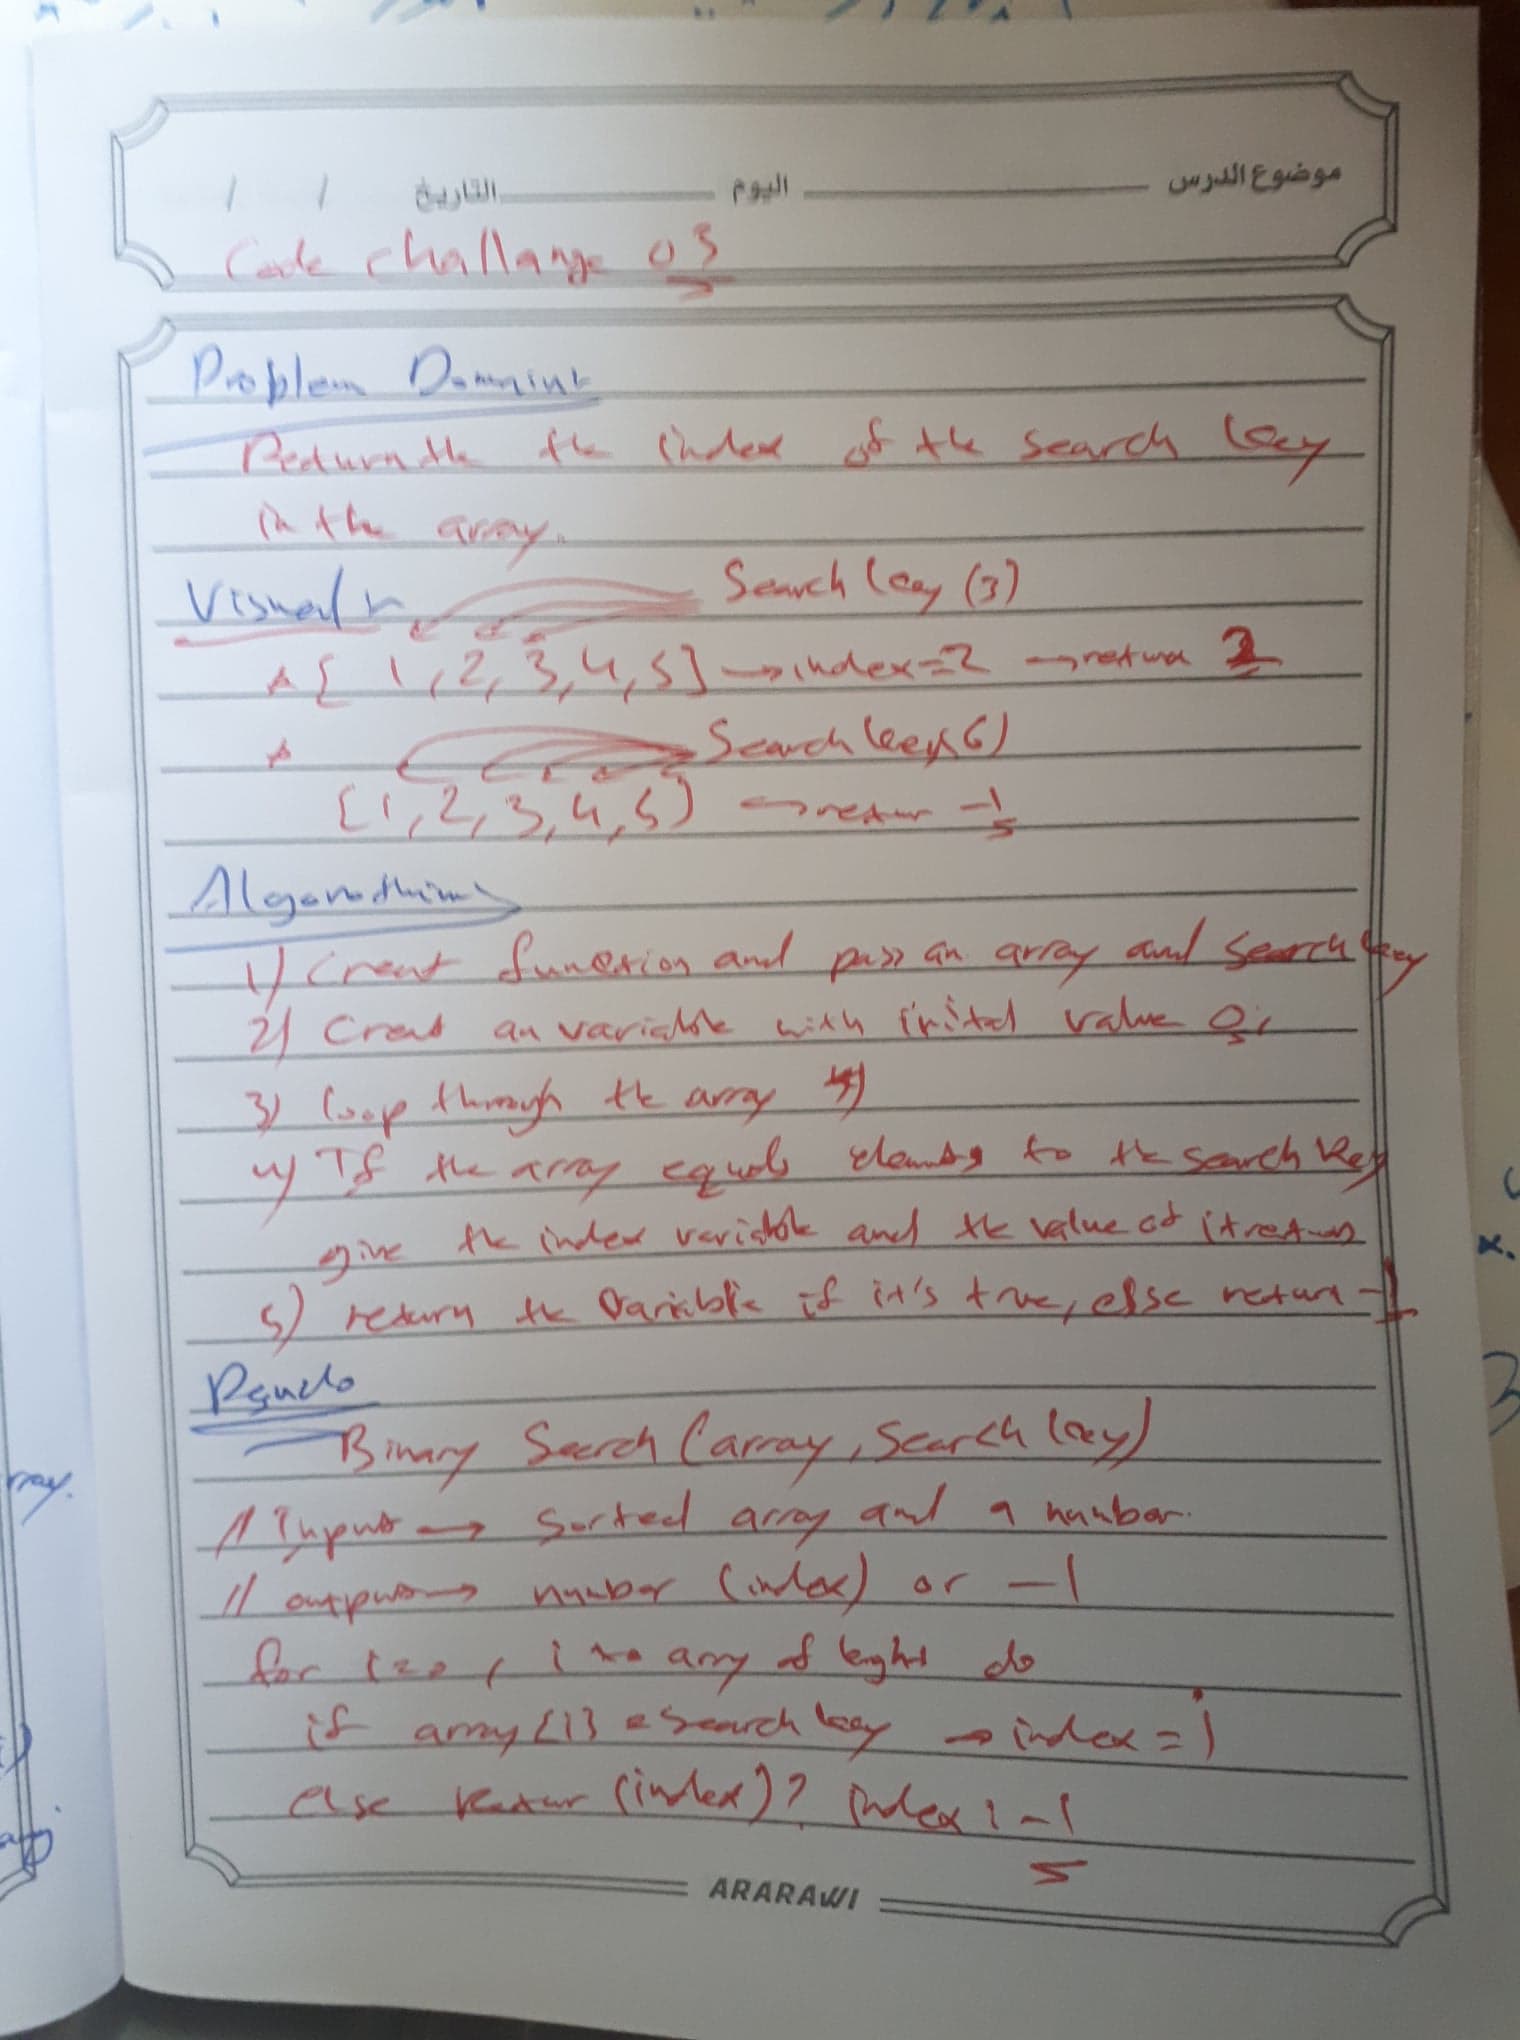 موضوع الدرس اليوم التاريخ / /
Code challange 03
Problem Domain
Return the the index of the search key
in the array.
Visual
Search key (3)
[ 1, 2, 3, 4, 5] → index=2 → return 2
Search key 6)
[1, 2, 3, 4, 5] → retur -1
Algorothim
1) Creat function and pass an array and Search key
2) Creat an variable with inital value 0;
3) loop through the array
4) If the array equals to the search key
give the index variable and the value of it return
5) return the variable if it's true, else return -1
Pseudo
Binary Search (array, Search key)
// Input → Sorted array and a number.
// output → number (index) or -1
for i=0, i to array of leght do
if array [i] = Search key → index = i
else retur (index)? index : -1
ARARAWI